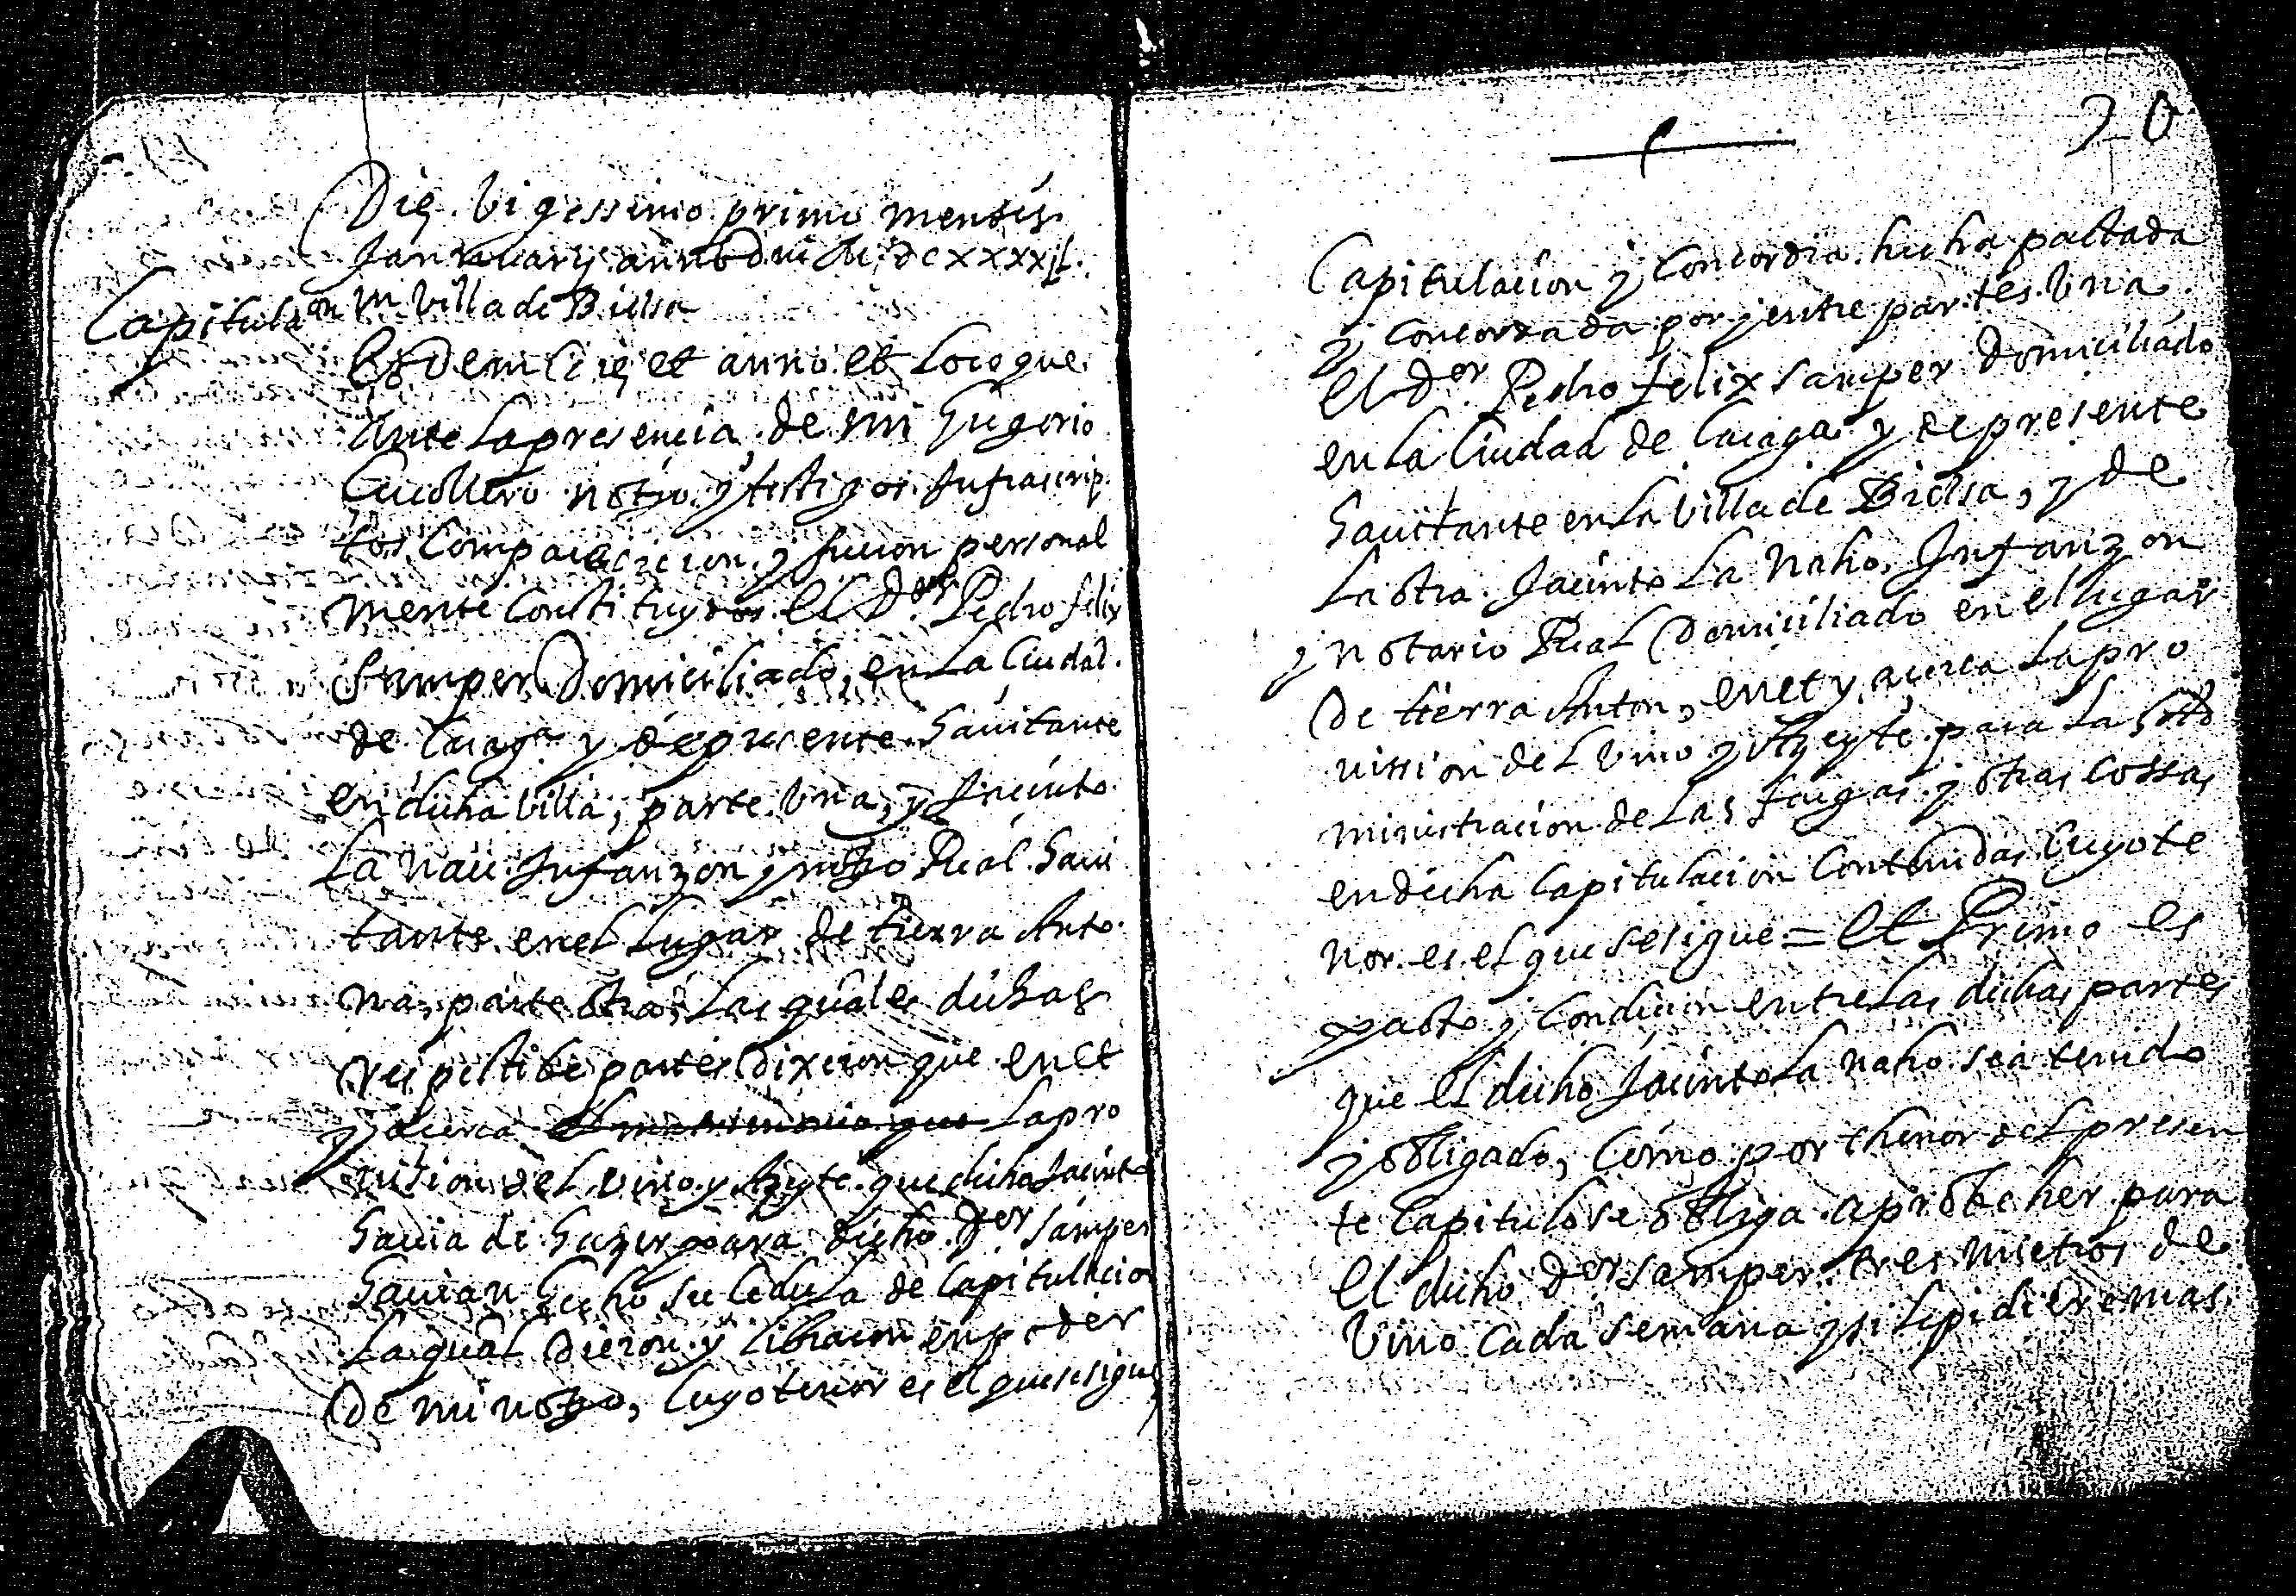 Die Vigessimo primo mensis
Januarij anno Dni M,dcxxxxjL.
Capitula^on
in Villa de Bielsa
Eodem die et anno et Loco que
Ante la presencia de mi Gregorio
Cucollero notro. y testigos Infrascrip
tos Comparecieron y fueron personal
mente Constituydos el D.or Pedro felix
Samper Domiciliado, en La Ciudad.
de Caragª y depresente Hauitante
en dicha Villa, parte Vna, y Jacinto
La nau Infanzon y notro Real Haui
tante en el Lugar de tierra Anto
na, parte otra, Las quales dichas
respectibe partes Dixeron que en et
y acerca la pro
uision del vino y Azeyte que dicho Jacinto
Hauia de Hazer para dicho D.or Samper
Hauian Hecho su Cedula de Capitulacion
La qual Dieron y libraron en poder
De mi notro, Cuyo tenor es el que se sigue
20
Capitulacion y Concordia hecha pactada
y Concordada por y entre partes. Vna
el D.or Pedro felix samper Domiciliado
en La Ciudad de Caragª y de presente
Hauitante en La Villa de Bielsa, y de
La otra Jacinto La naho, Infanzon
y notario Real Domiciliado en el lugar
De tierra Anton, en et y acerca La pro
uission del Vino y Azeyte para La
ministracion de Las fargas y otras cossas
en dicha Capitulacion Contenidas Cuyo te
nor es el que se sigue = Et Primo es
pacto y Condicion entre Las dichas partes
que el dicho Jacinto La naho sea tenido
y obligado, Como por thenor del presen
te Capitulo se obliga a probeher para
el dicho D.or samper tres mietros de
Vino Cada semana y si le pidiere mas